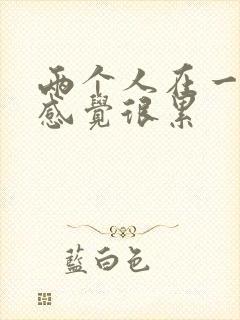 兩个人在一
感覺很累
藍白色